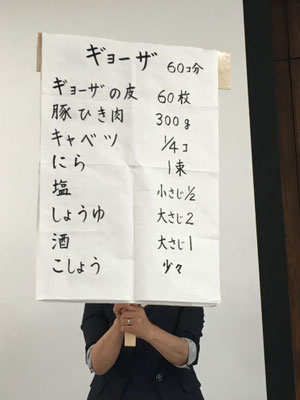 ギョーザ 60コ分
ギョーザの皮 60枚
豚ひき肉 300g
キャベツ 1/4コ
にら 1束
塩 小さじ1/2
しょうゆ 大さじ2
酒 大さじ1
こしょう 少々